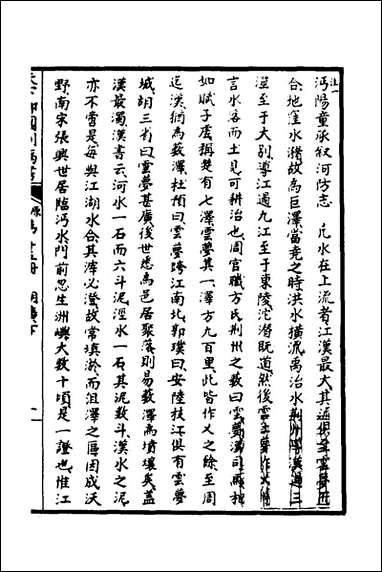 沔陽童承叙河防志 凡水在上流者江漢最大其
合地窪水瀦故為巨澤當堯之時洪水橫流禹治水荆州導漢過三
澨至于大別導江過九江至于東陵沱潛旣道然後雲土夢作乂
言水落而土見可耕治也周官職方氏荆州之藪曰雲夢漢司馬相
如賦子虛稱楚有七澤雲夢其一澤方九百里此皆作乂之餘至周
迄漢猶為藪澤杜預曰雲夢跨江南北郭璞曰安陸枝江俱有雲夢
城胡三省曰雲夢甚廣後世悉為邑居聚落則易藪澤為墳壤矣蓋
漢最濁漢書云河水一石而六斗泥涇水一石其泥數斗漢水之泥
亦不啻是每與江湖水合其滓必澄故常填淤而沮澤之區因成沃
野南宋張興世居臨沔水門前忽生洲嶼大數十頃是一證也惟江